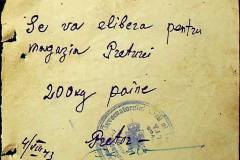 Se va elibera pentru
magazia Preturei
200 kg paine
4/VIII 43
Pretor –